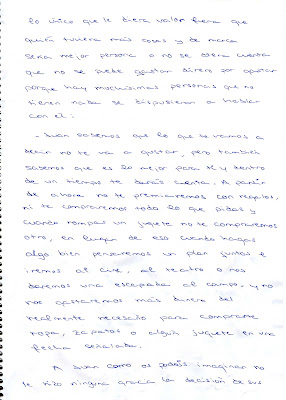 lo único que le diera valor fuera que
quién tuviera más cosas y de marca
sería mejor persona o no se diera cuenta
que no se debe gastar dinero por gastar
porque hay muchísimas personas que no
tienen nada se dispusieron a hablar
con el:
- Juan sabemos que lo que te vamos a
decir no te va a gustar, pero también
sabemos que es lo mejor para ti y dentro
de un tiempo te darás cuenta. A partir
de ahora no te premiaremos con regalos,
ni te compraremos todo lo que pidas y
cuando rompas un juguete no te compraremos
otro, en lugar de eso cuando hagas
algo bien pensaremos un plan juntos e
iremos al cine, al teatro o nos
daremos una escapada al campo. y no
nos gastaremos más dinero del
realmente necesario para comprarte
ropa, zapatos o algún juguete en una
fecha señalada.
A Juan como os podéis imaginar no
le hizo ninguna gracia la decisión de sus